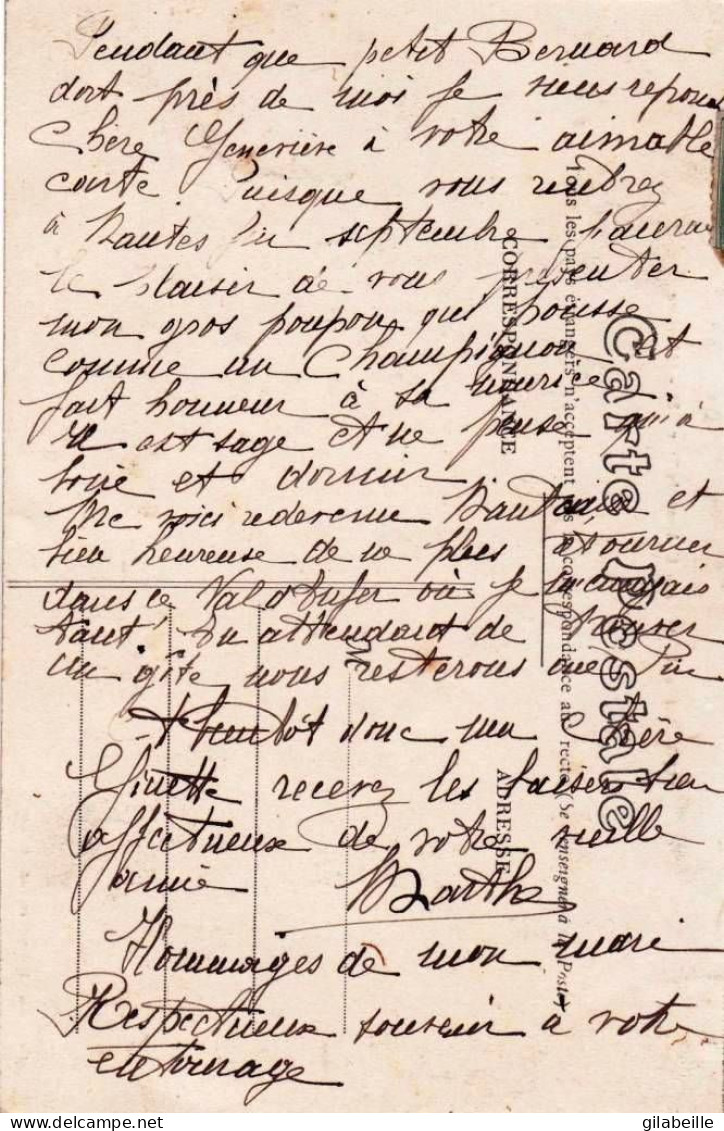 Pendant que petit Bernard
dort près de moi je viens répondre
chère Geneviève à votre aimable
carte. Puisque vous rentrez
à Nantes fin septembre j'aurai
le plaisir de vous présenter
mon gros poupon qui pousse
comme un Champignon et
fait honneur à sa nourice
Il est sage et ne pense qu'à
boire et dormir
Me voici redevenue Nantaise et
bien heureuse de ne plus
dans ce Val où je m'ennuyais
tant! En attendant de trouver
un gîte nous resterons
A bientôt donc ma chère
Ginette recevez les baisers bien
affectueux de votre vieille
amie Marthe
Hommages de mon mari
Respectueux souvenir à votre
entourage
Carte Postale
Tous les pays étrangers n'acceptent pas la correspondance au recto (Se renseigner à la Poste)
CORRESPONDANCE
ADRESSE
M
gilabeille